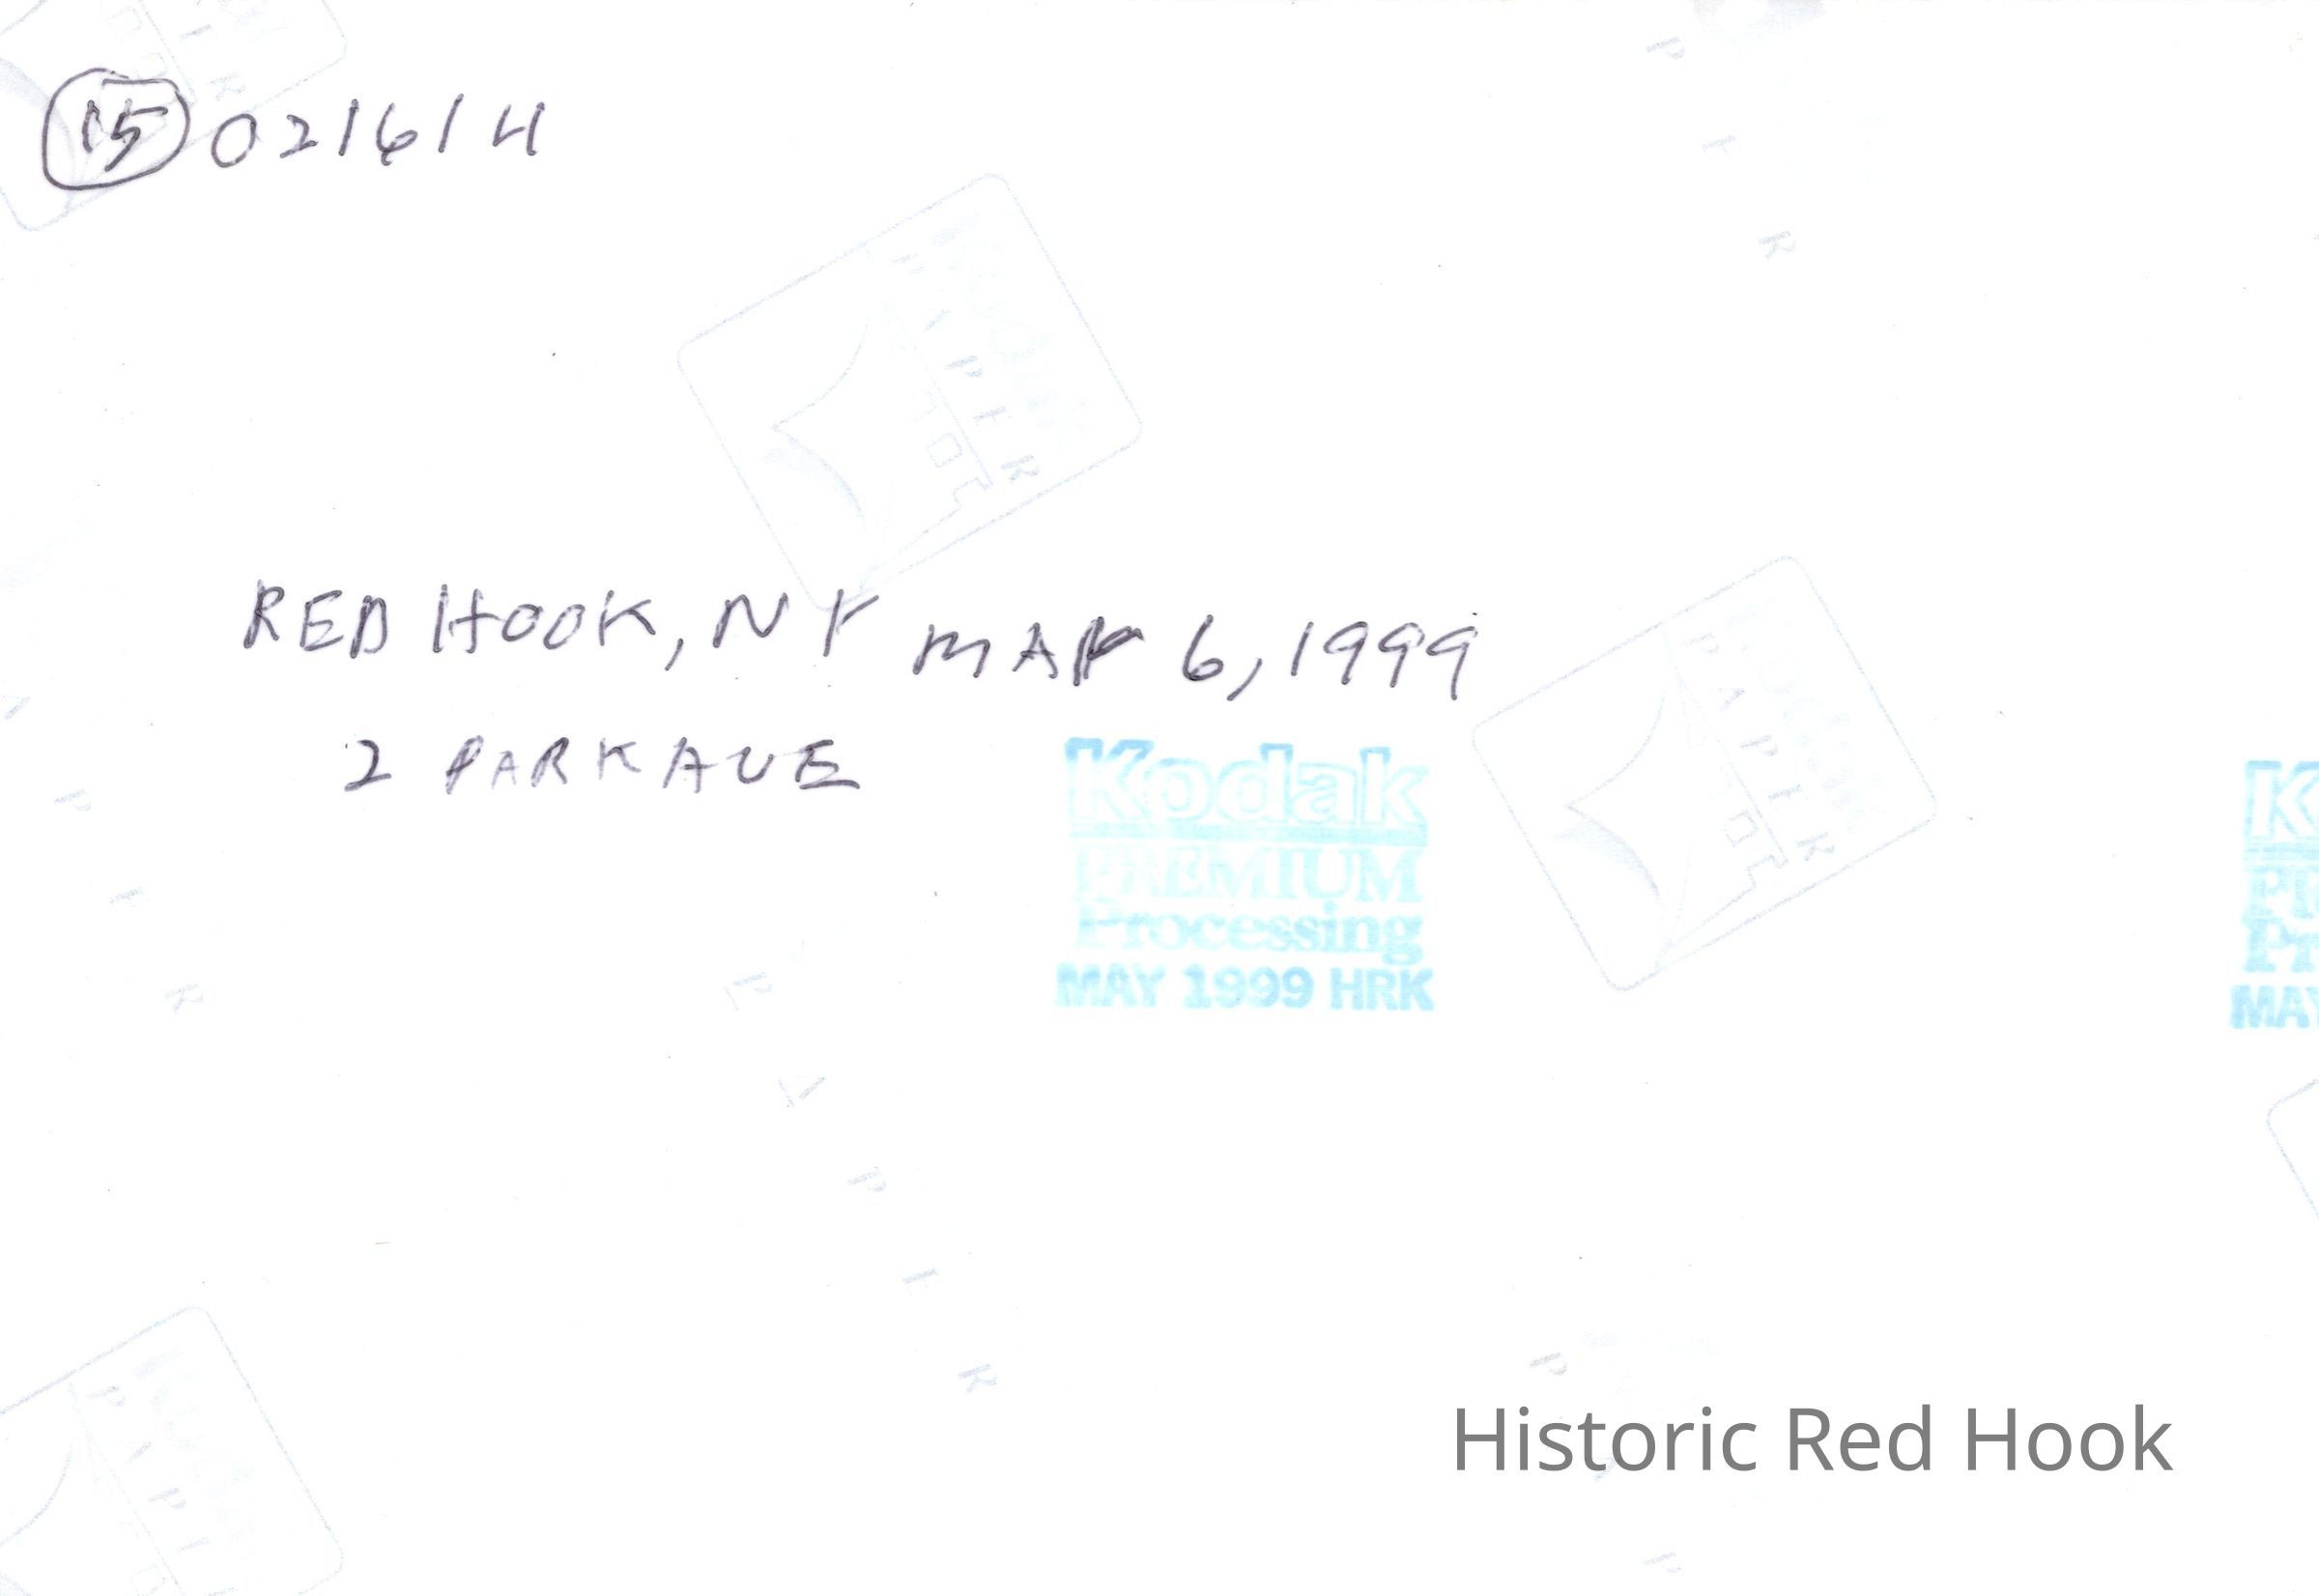 15 021614
RED HOOK, NY MAR 6, 1999
2 PARK AVE
Kodak
PREMIUM
Processing
MAY 1999 HRK
Historic Red Hook